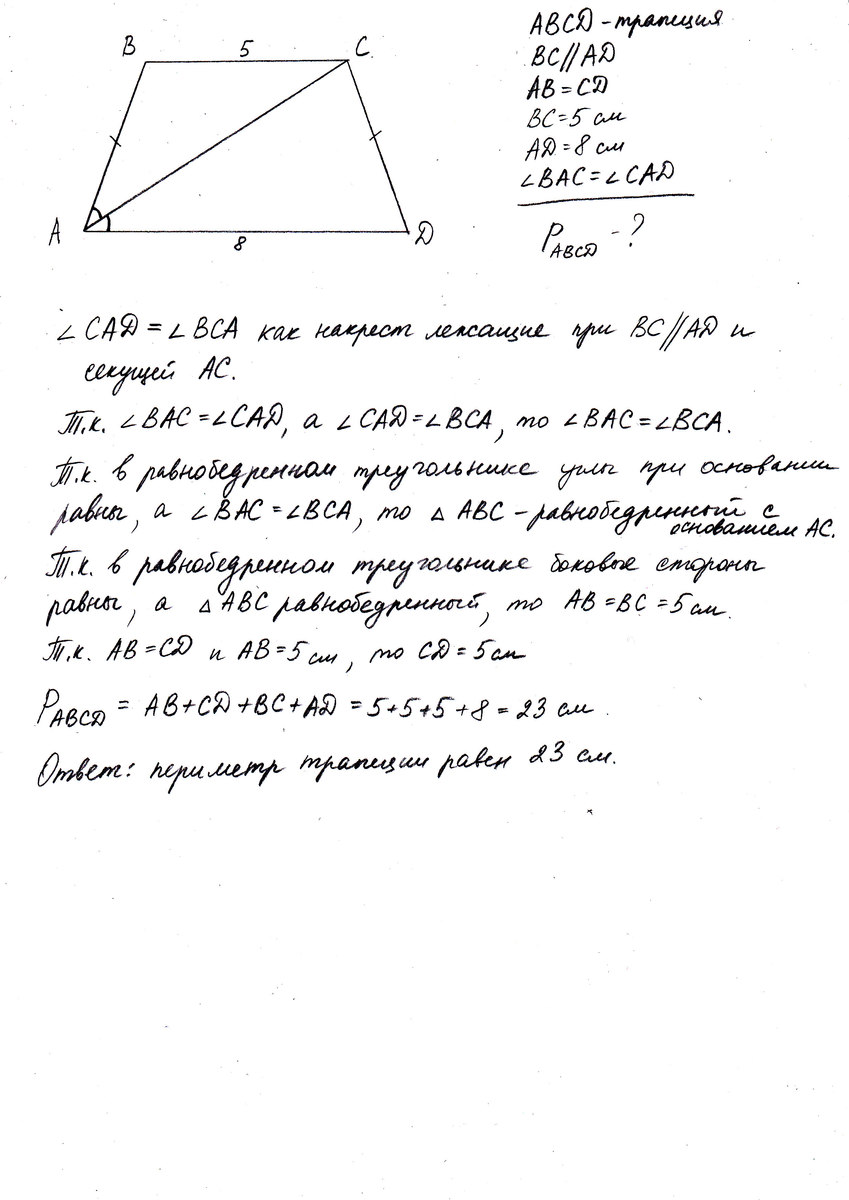 B 5 C
A 8 D
ABCD - трапеция
BC//AD
AB = CD
BC = 5 см
AD = 8 см
∠BAC = ∠CAD
P ABCD - ?
∠CAD = ∠BCA как накрест лежащие при BC//AD и
секущей AC.
Т.к. ∠BAC = ∠CAD, а ∠CAD = ∠BCA, то ∠BAC = ∠BCA.
Т.к. в равнобедренном треугольнике углы при основании
равны, а ∠BAC = ∠BCA, то △ ABC - равнобедренный с
основанием AC.
Т.к. в равнобедренном треугольнике боковые стороны
равны, а △ABC равнобедренный, то AB = BC = 5 см.
Т.к. AB = CD и AB = 5 см, то CD = 5 см
P ABCD = AB + CD + BC + AD = 5 + 5 + 5 + 8 = 23 см.
Ответ: периметр трапеции равен 23 см.